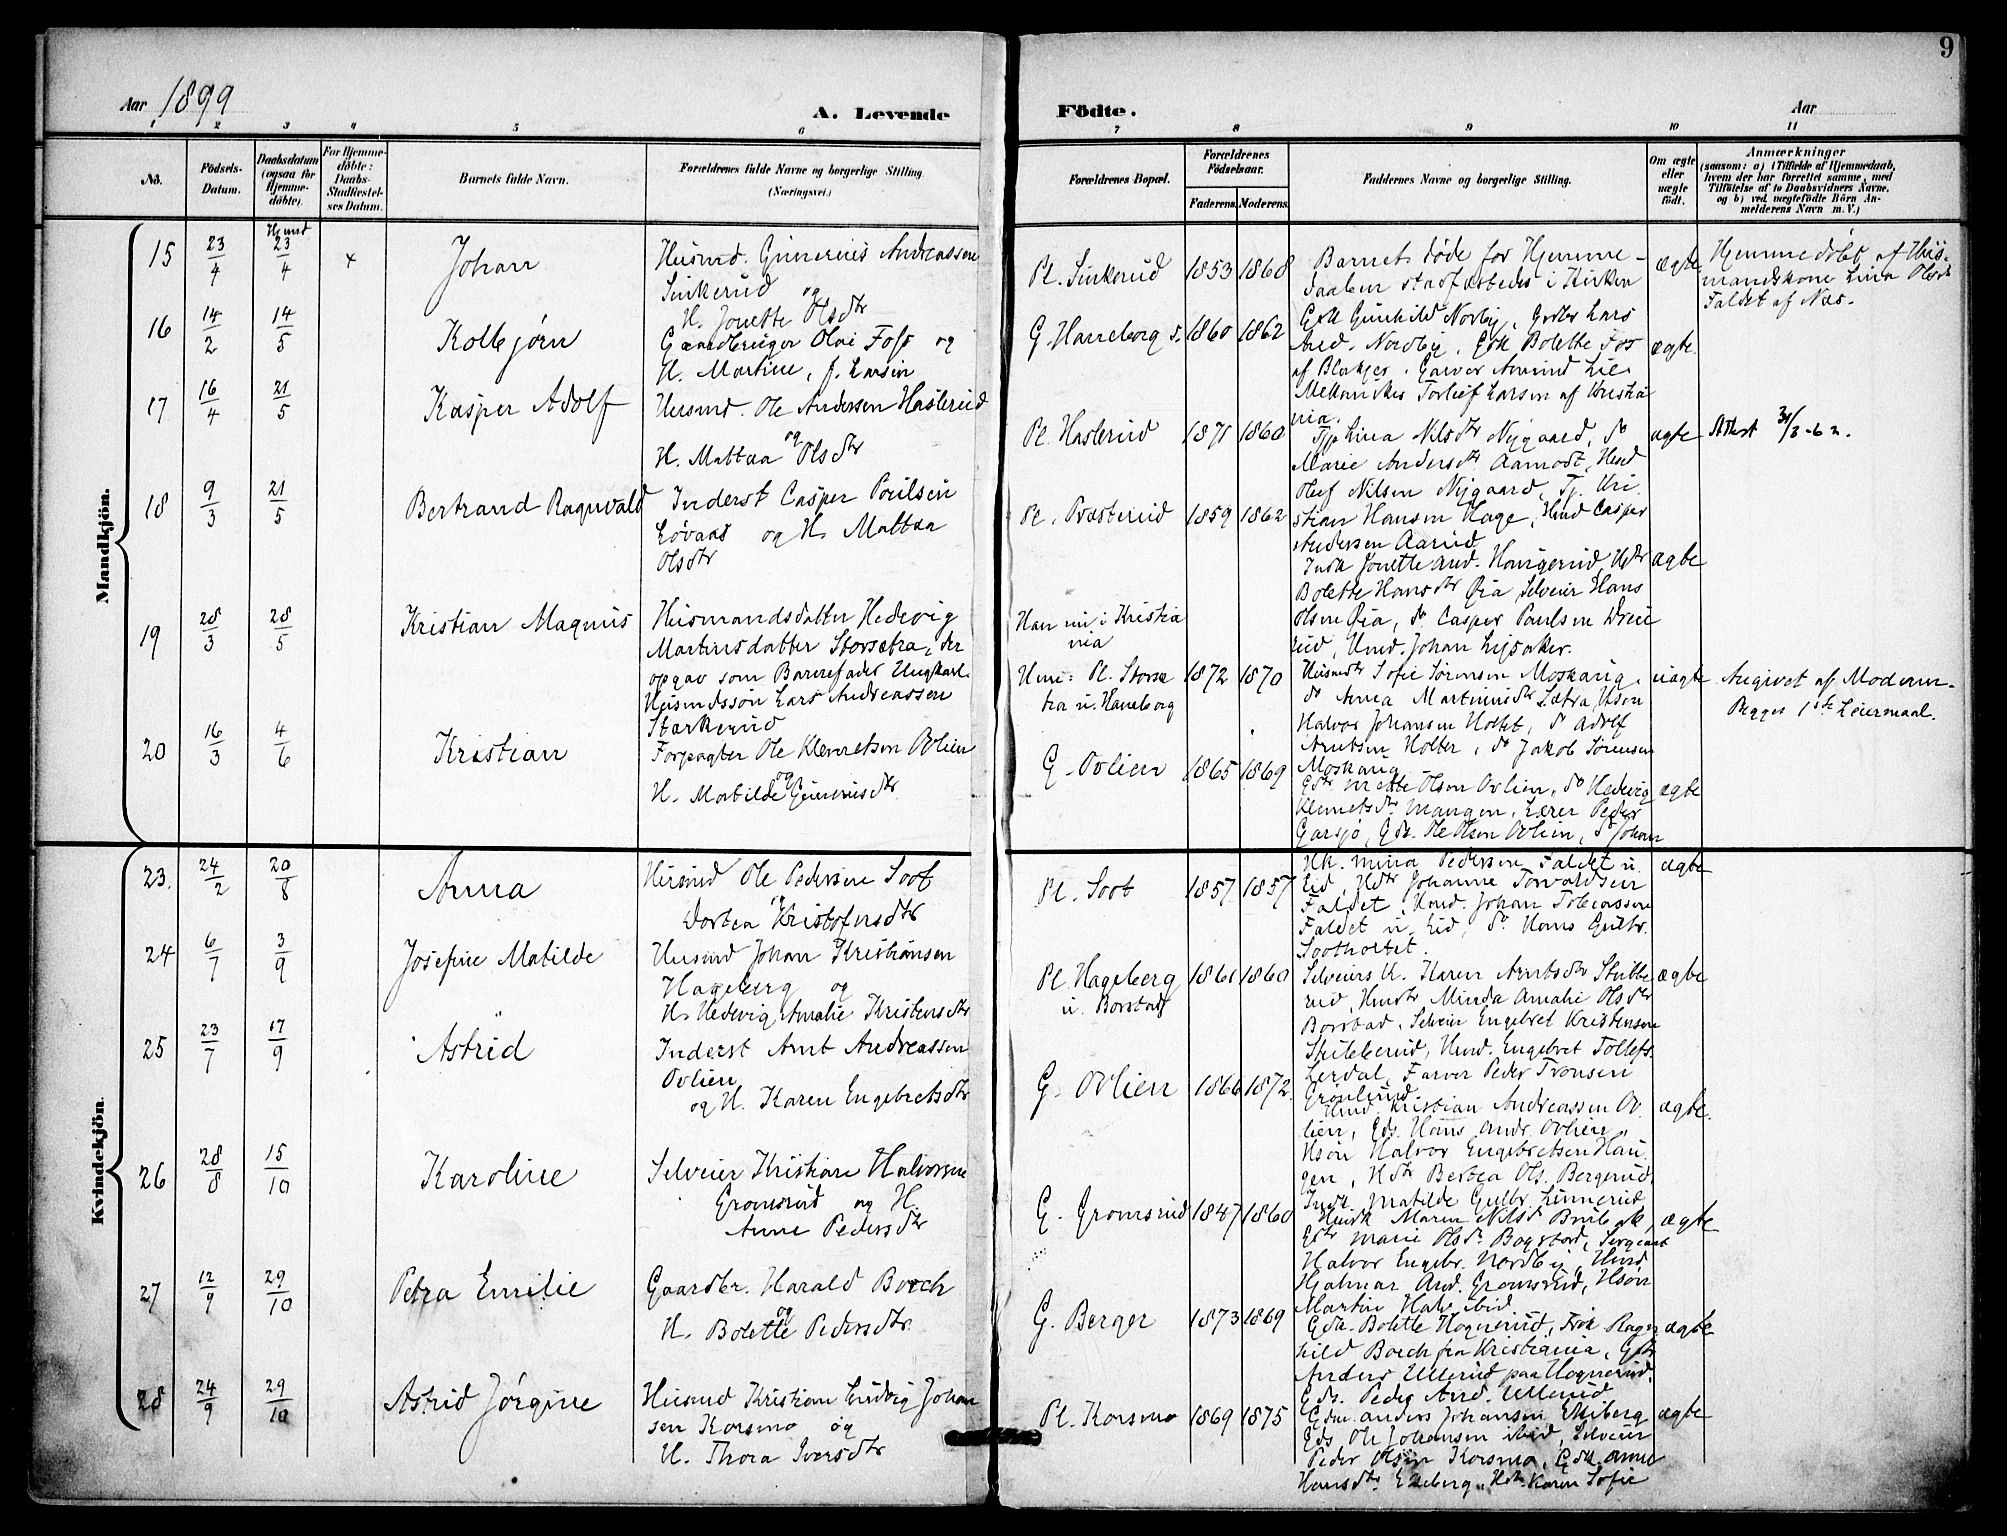 9
Aar 1899
A. Levende
Födte.
Aar
1 2 3 4 5 6 7 8 9 10 11
No.
Födsels-Datum.
Daabsdatum (ogsaa for Hjemme-döbte).
For Hjemme-döbte: Daabs-Stadfæstel-ses Datum.
Barnets fulde Navn.
Forældrenes fulde Navne og borgerlige Stilling. (Næringsvei.)
Forældrenes Bopæl.
Forældrenes Födselsaar.
Faderens. Moderens.
Faddernes Navne og borgerlige Stilling.
Om ægte eller uægte födt.
Anmærkninger
(saasom: a) i Tilfælde af Hjemmedaab, hvem der har forrettet samme, med Tilföielse af to Daabsvidners Navne. og b) ved uægtefödte Börn An-melderens Navn m. V.)
Mandkjön.
15 23/4 23/4 x Johan
Husmd. Gunerius Andreassen
Sinkerud og
H. Jonette Olsdtr
Pl. Sinkerud 1853 1868
Barnet døde før Hjemme-
daaben stadfæstedes i Kirken
ægte
Hjemmedøbt af Hus-
mandskone Lina Olsdtr
Faldet af Næs.
16 14/2 14/5 Kolbjørn
Gaardbruger Olai Foss og
H. Martine, f. Larsen
G. Haneborg s. 1860 1862
Gdk Gunhild Nordby, Gdbr Lars
And. Nordby, Gdk Bolette Fos
af Blakjer. Garver Amund Lie.
Mekanikus Torleif Larsen af Kristia
nia.
ægte
17 16/4 21/5 Kasper Adolf
Husmd. Ole Andersen Haslerud
og
H. Mattea Olsdtr
Pl. Haslerud 1871 1860
Tjp Lina Nilsdtr Nygaard, do
Marie Andersdtr Aamodt, Hmd
Oluf Nilsen Nygaard, Tj. Kri
stian Hansen Hage, Hmd Casper
Andersen Aarud
ægte
Attest 31/3-62.
18 9/3 21/5 Bertrand Ragnvald
Inderst Casper Poulsen
Løvaas og H. Mattea
Olsdtr
Pl. Præsterud 1859 1862
Indk Jonette And. Haugerud, Hdtr
Bolette Hansdtr Øia, Selveier Hans
Olsen Øia, do Casper Paulsen
Hmd. Johan Lysaker.
ægte
19 28/3 28/5 Kristian Magnus
Husmandsdatter Hedevig
Martinsdatter Storsætra, der
opgav som Barnefader Ungkarl
Husmdssøn Lars Andreassen
Stærkerud
Han nu i Kristia
nia
Hun: Pl. Storsæ
tra u. Haneborg
1872 1870
Husmdtr Sofie Sørensen Moskaug,
do Anna Martinusdtr Sætra, Hsøn
Halvor Johansen Holtet, do Adolf
Arntsen Holter, do Jakob Sørensen
Moskaug
uægte
Angivet af Moderen.
Begges 1ste Leiermaal.
20 16/3 4/6 Kristian
Forpagter Ole Klemetsen Ovlien
og
H. Matilde Gunerusdtr
G. Ovlien 1865 1869
Gdtr Mette Olsen Ovlien, do Hedevig
Klemetsdtr Mangen, Lærer Peder
Garsjø, Gds. Ole Olsen Ovlien, do Johan
ægte
Kvindekjön.
23. 24/2 20/8 Anna
Husmd Ole Pedersen Soot
og
Dortea Kristofersdtr
Pl. Soot 1857 1857
Hk. Mina Pedersen Faldet u.
Eid, Hdtr Johanne Torvaldsen
Faldet, Hmd. Johan Tobiassen
Faldet u. Eid, do Hans Gulbr.
Sootholtet.
ægte
24 6/7 3/9 Josefine Matilde
Husmd Johan Kristiansen
Hageberg og
H. Hedevig Amalie Kristensdtr
Pl. Hageberg
u. Borstad
1861 1860
Selveiers K. Karen Arntsdtr Skitbe
rud, Hmdtr Minda Amalie Olsdtr
Borstad, Selveier Engebret Kristensen
Skitberud, Hmd. Engebret Tollefs.
Lerdal, Farver Peder Tronsen
Grønlund.
ægte
25 23/7 17/9 Astrid
Inderst Arnt Andreassen
Ovlien
og H. Karen Engebretsdtr
G. Ovlien 1866 1872.
Hmd. Kristian Andreassen Ov
lien, Gds. Hans Andr. Ovlien,
Hsøn Halvor Engebretsen Hau
gen, Hdtr Bertea Ols. Bergerud,
Indk. Matilde Gulbr. Linnerud
ægte.
26 28/8 15/10 Karoline
Selveier Kristian Halvorsen
Gromsrud og H.
Anne Pedersdtr
G. Gromsrud 1847 1860
Husk Maren Nilsd Brubak,
Gdtr Marie Olsdr Bogstad, Sergeant
Halvor Engebr. Nordby, Hmd.
Hjalmar And. Gromsrud, Hsøn
Martin Halv. ibid
ægte
27 12/9 29/10 Petra Emilie
Gaardbr. Harald Borch
og
H. Bolette Pedersdtr.
G. Berger 1873 1869
Gdk. Bolette Hognerud, Frøk Ragn
hild Borch fra Kristiania, Gbr
Anders Ullerud paa Hognerud,
Gds. Peder And. Ullerud
ægte
28 24/9 29/10 Astrid Jørgine
Husmd Kristian Ludvig Johan
sen Korsmo og
H. Thora Iversdtr
Pl. Korsmo 1869 1875
Gdm. Anders Johansen Ekeberg
Gds Ole Johansen ibid, Selveier
Peder Olsen Korsmo, Gdk. Anne
Hansdtr Ekeberg, Hdtr Karen Sofie
ægte